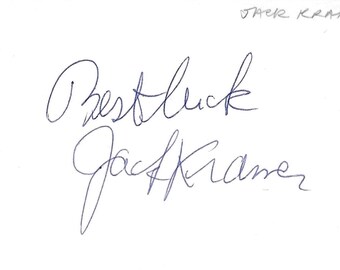 JACK KRAM
Best luck
Jack Kramer